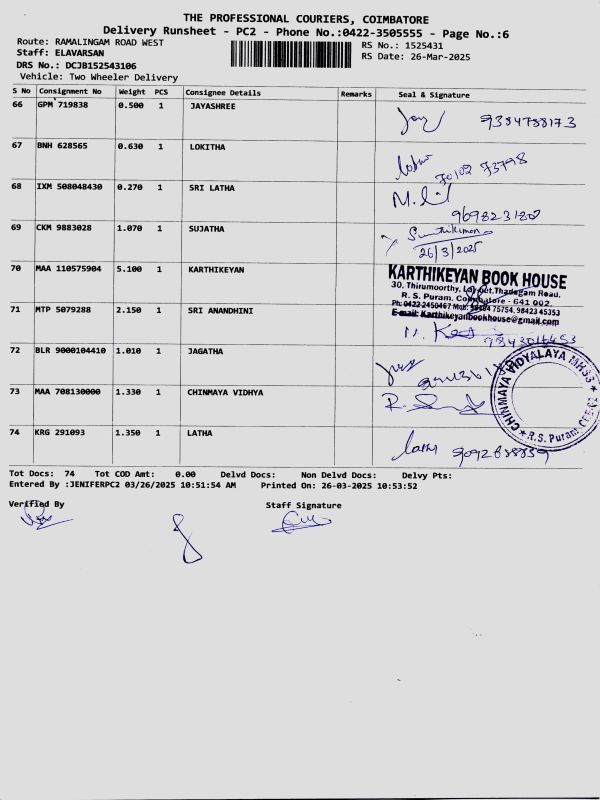 THE PROFESSIONAL COURIERS, COIMBATORE
Delivery Runsheet - PC2 - Phone No.:0422-3505555 - Page No.:6
Route: RAMALINGAM ROAD WEST
RS No.: 1525431
Staff: ELAVARSAN
RS Date: 26-Mar-2025
DRS No.: DCJB152543106
Vehicle: Two Wheeler Delivery
S No Consignment No Weight PCS Consignee Details Remarks Seal & Signature
66 GPM 719838 0.500 1 JAYASHREE
9384788173
67 BNH 628565 0.630 1 LOKITHA
70102 73798
68 IXM 508048430 0.270 1 SRI LATHA
69 CKM 9883028 1.070 1 SUJATHA
26/3/2025
70 MAA 110575904 5.100 1 KARTHIKEYAN
KARTHIKEYAN BOOK HOUSE
30, Thirumoorthy, Layout, Thadagam Road,
R. S. Puram, Coimbatore - 641 002.
Ph: 0422-2450467 Mob: 75754, 98423 45353
E-mail: Karthikeyanbookhouse@gmail.com
71 MTP 5079288 2.150 1 SRI ANANDHINI
72 BLR 9000104410 1.010 1 JAGATHA
73 MAA 708130000 1.330 1 CHINMAYA VIDHYA
CHINMAYA VIDYALAYA MHSS
R.S. Puram CBE-02
74 KRG 291093 1.350 1 LATHA
Latha 9092838859
Tot Docs: 74 Tot COD Amt: 0.00 Delvd Docs: Non Delvd Docs: Delvy Pts:
Entered By :JENIFERPC2 03/26/2025 10:51:54 AM Printed On: 26-03-2025 10:53:52
Verified By
Staff Signature